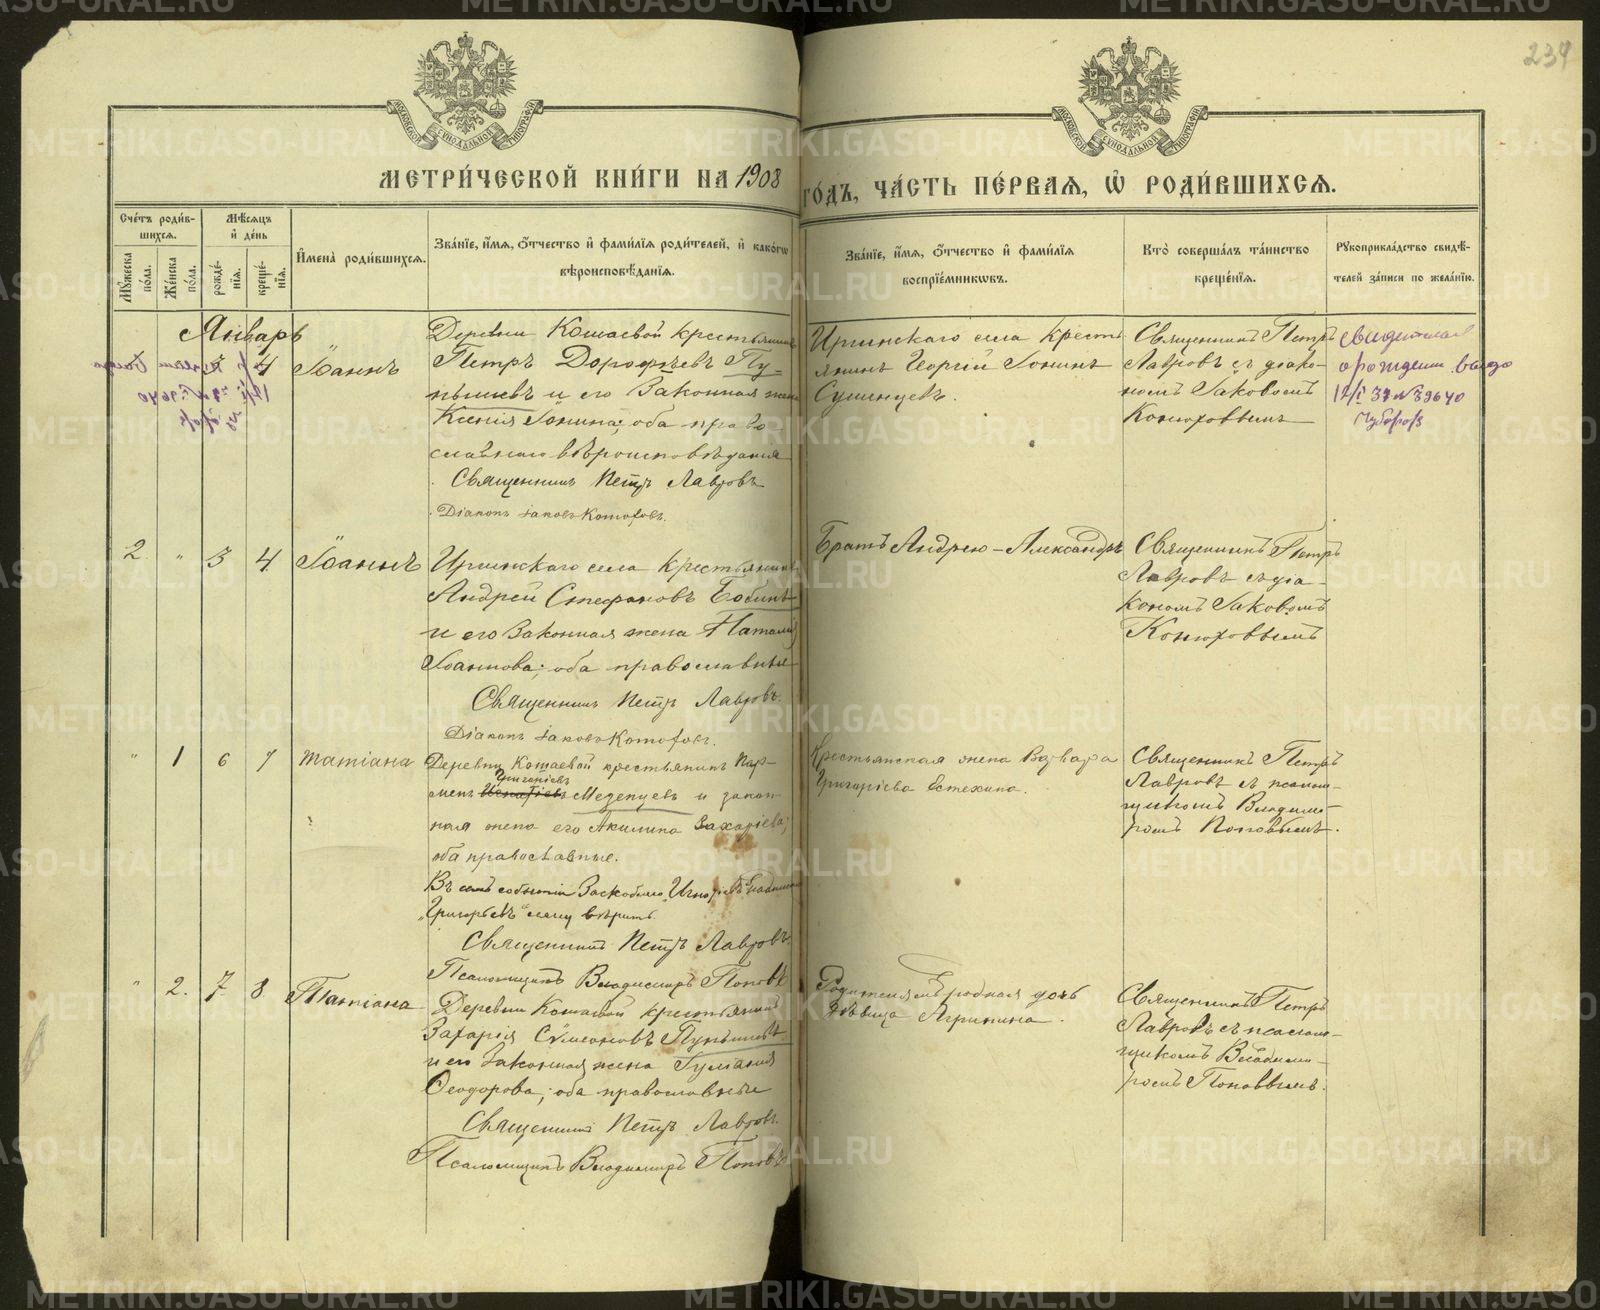 234
МЕТРИ́ЧЕСКОЙ КНИ́ГИ НА 1908 ГО́ДЪ, ЧА́СТЬ ПЕ́РВАЯ, Ѡ РОДИ́ВШИХСЯ.
Сче́тъ роди́в-
шихся.
Мꙋ́жеска по́ла.
Же́нска по́ла.
Мѣ́сяцъ и҆ де́нь
рожде́нїя.
креще́нїя.
И҆мена̀ роди́вшихся.
Зва́нїе, и҆́мя, ѻ҆́тчество и҆ фами́лїя роди́телей, и҆ како́гѡ
вѣроисповѣ́данїя.
Зва́нїе, и҆́мя, ѻ҆́тчество и҆ фами́лїя
воспрїе́мникѡвъ.
Кто̀ соверша́лъ та́инство
креще́нїя.
Рꙋкоприкла́дство свидѣ́-
телей за́писи по жела́нїю.
Январь
4
Іоаннъ
Деревни Кошаевой крестьянинъ
Петръ Дорофѣевъ Пу-
пышевъ и его Законная жена
Ксенія Іонина; оба право
славнаго вѣроисповѣданія
Священникъ Петръ Лавровъ
Діаконъ Іаковъ Конюховъ.
Иргинскаго села Кресть
янинъ Георгій Іонинъ
Сушинцевъ.
Священникъ Петръ
Лавровъ съ діако-
номъ Іаковомъ
Конюховымъ
о рождении выдано
12/I 39 № 39640
2 " 3 4 Іоаннъ
Иргинскаго села Крестьянинъ
Андрей Стефановъ Бобинъ
и его Законная жена Наталія
Іоаннова; оба православные
Священникъ Петръ Лавровъ.
Діаконъ Іаковъ Конюховъ.
Братъ Андрею - Александръ
Священникъ Петръ
Лавровъ съ діа-
кономъ Іаковомъ
Конюховымъ
" 1 6 7 Татіана
Деревни Кошаевой крестьянинъ Пар-
Григоріевъ
менъ Игнатіевъ Меденцевъ и закон-
ная жена его Акилина Захаріева;
оба православные.
Въ семъ событіи Заскоблено "Игнатіевъ" надписано
"Григорьевъ" сему вѣрить.
Священникъ Петръ Лавровъ.
Псаломщикъ Владимиръ Поповъ
Крестьянская жена Варвара
Григоріева Естехина.
Священникъ Петръ
Лавровъ съ псалом-
щикомъ Владими-
ромъ Поповымъ.
" 2. 7. 8. Татіана
Деревни Кошаевой крестьянинъ
Захарія Сѵмеоновъ Пупышевъ
и его Законная жена Гуланія
Ѳеодорова; оба православные
Священникъ Петръ Лавровъ.
Псаломщикъ Владимиръ Поповъ
Родителямъ родная дочь
дѣвица Агрипина.
Священникъ Петръ
Лавровъ съ псалом-
щикомъ Владими-
ромъ Поповымъ.
METRIKI.GASO-URAL.RU